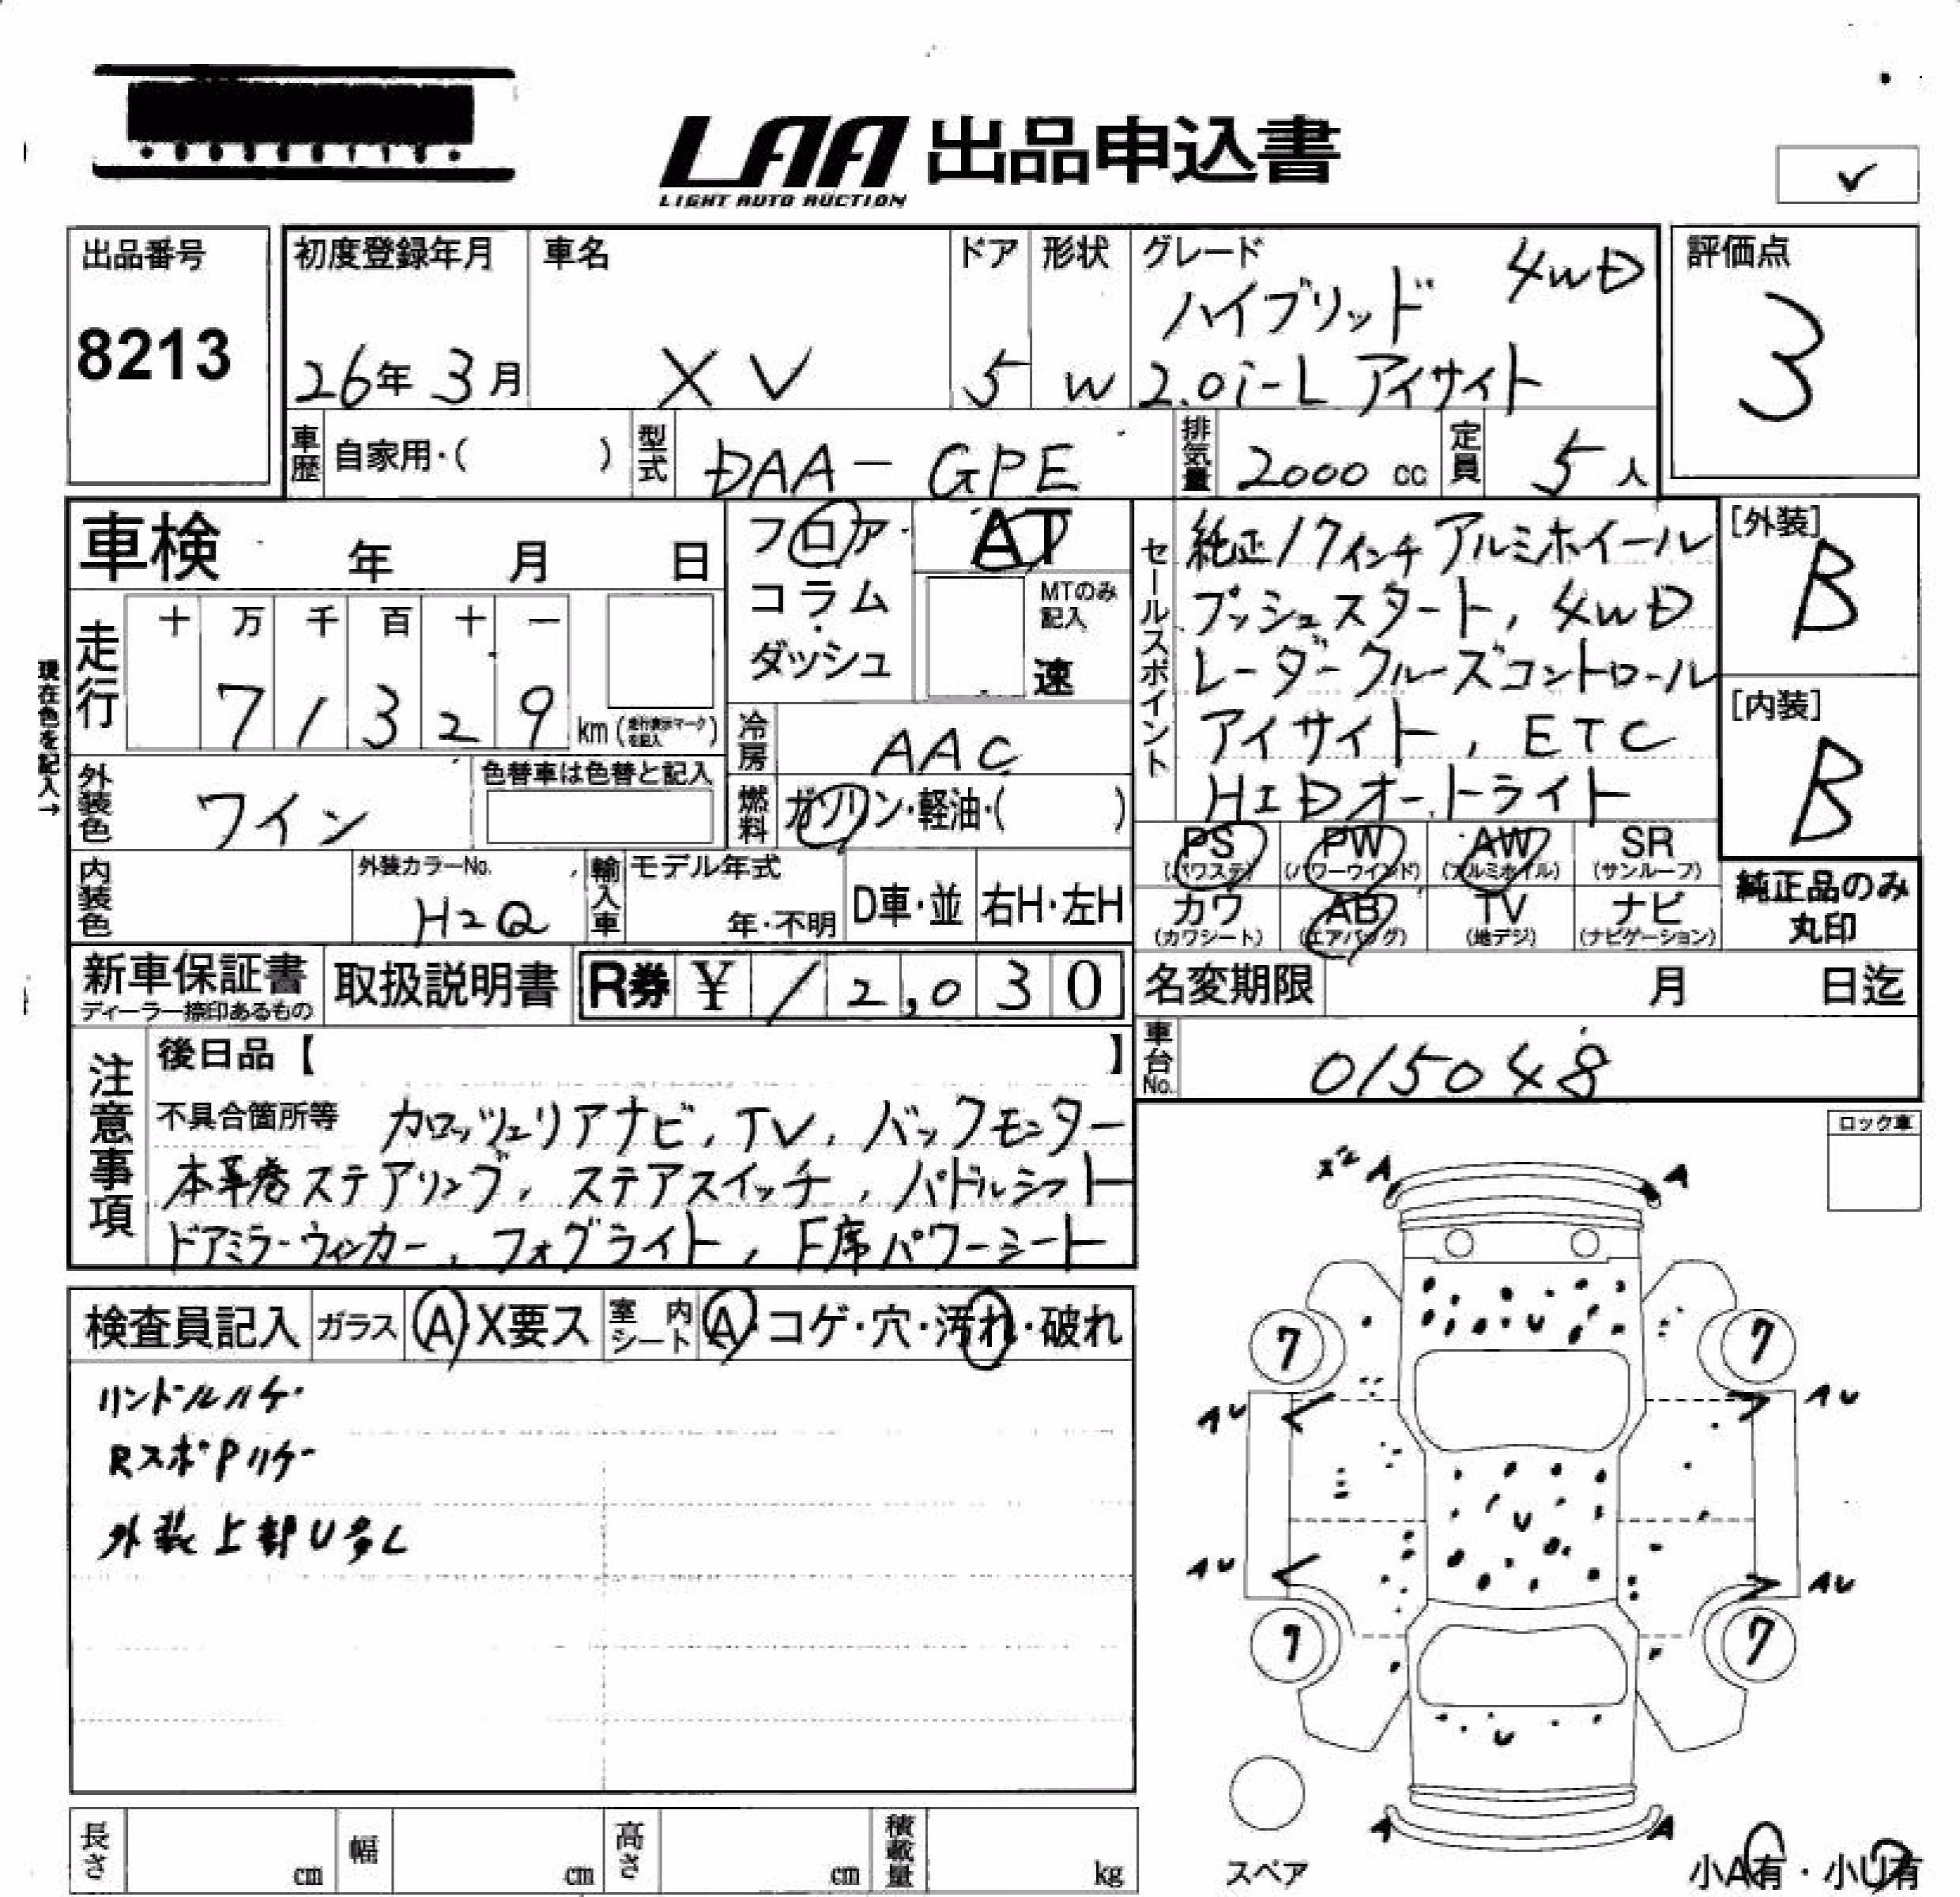 LAA 出品申込書
LIGHT AUTO AUCTION
✓
出品番号
8213
初度登録年月
26年 3月
車名
XV
ドア
5
形状
W
グレード
ハイブリッド 4WD
2.0i-L アイサイト
評価点
3
車歴 自家用・( )
型式 DAA-GPE
排気量 2000 cc
定員 5人
車検 年 月 日
フロア AT
コラム
・
ダッシュ
MTのみ
記入
速
セールスポイント
純正17インチアルミホイール
プッシュスタート, 4WD
レーダークルーズコントロール
アイサイト, ETC
HIDオートライト
[外装]
B
[内装]
B
現在色を記入→
走行
十 万 千 百 十 一
7 1 3 2 9 km (走行表示マークを記入)
冷房 AAC
外装色 ワイン
色替車は色替と記入
燃料 ガソリン・軽油・( )
PS (パワステ)
PW (パワーウインド)
AW (アルミホイル)
SR (サンルーフ)
カワ (カワシート)
AB (エアバッグ)
TV (地デジ)
ナビ (ナビゲーション)
純正品のみ
丸印
内装色
外装カラーNo.
H2Q
輸入車
モデル年式
年・不明
D車・並
右H・左H
新車保証書
ディーラー捺印あるもの
取扱説明書
R券 ¥ 12,030
名変期限 月 日迄
車台No. 015048
注意事項
後日品【 】
不具合箇所等 カロッツェリアナビ, TV, バックモニター
本革巻ステアリング, ステアスイッチ, パドルシフト
ドアミラーウィンカー, フォグライト, F席パワーシート
ロック車
検査員記入
ガラス A・X要ス
室内シート A・コゲ・穴・汚れ・破れ
ハンドルハゲ
RスポPハゲ
外装上部U多し
X2 A A
U
7 7
AU AU
U
AU AU
7 7
U
A A
スペア
小A有・小U有
長さ cm
幅 cm
高さ cm
積載量 kg